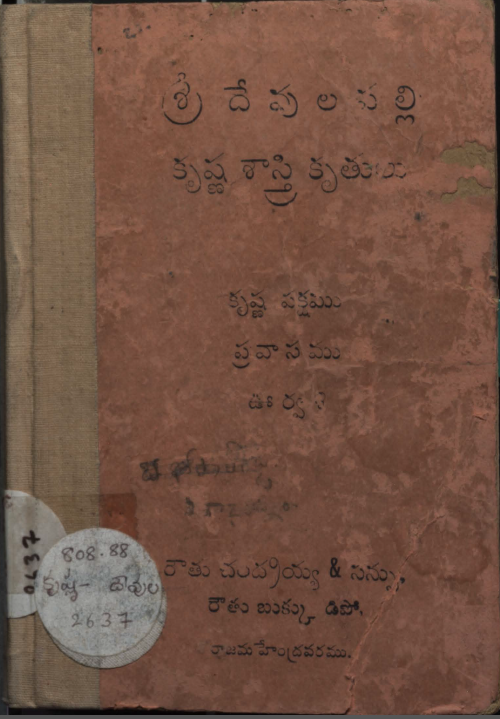 శ్రీ దేవులపల్లి
కృష్ణ శాస్త్రి కృతులు
కృష్ణ పక్షము
ప్రవాసము
ఊర్వశి
రౌతు చంద్రయ్య & సన్సు,
రౌతు బుక్కు డిపో.
రాజమహేంద్రవరము.
2637
808.88
కృష్ణ - దేవుల
2637